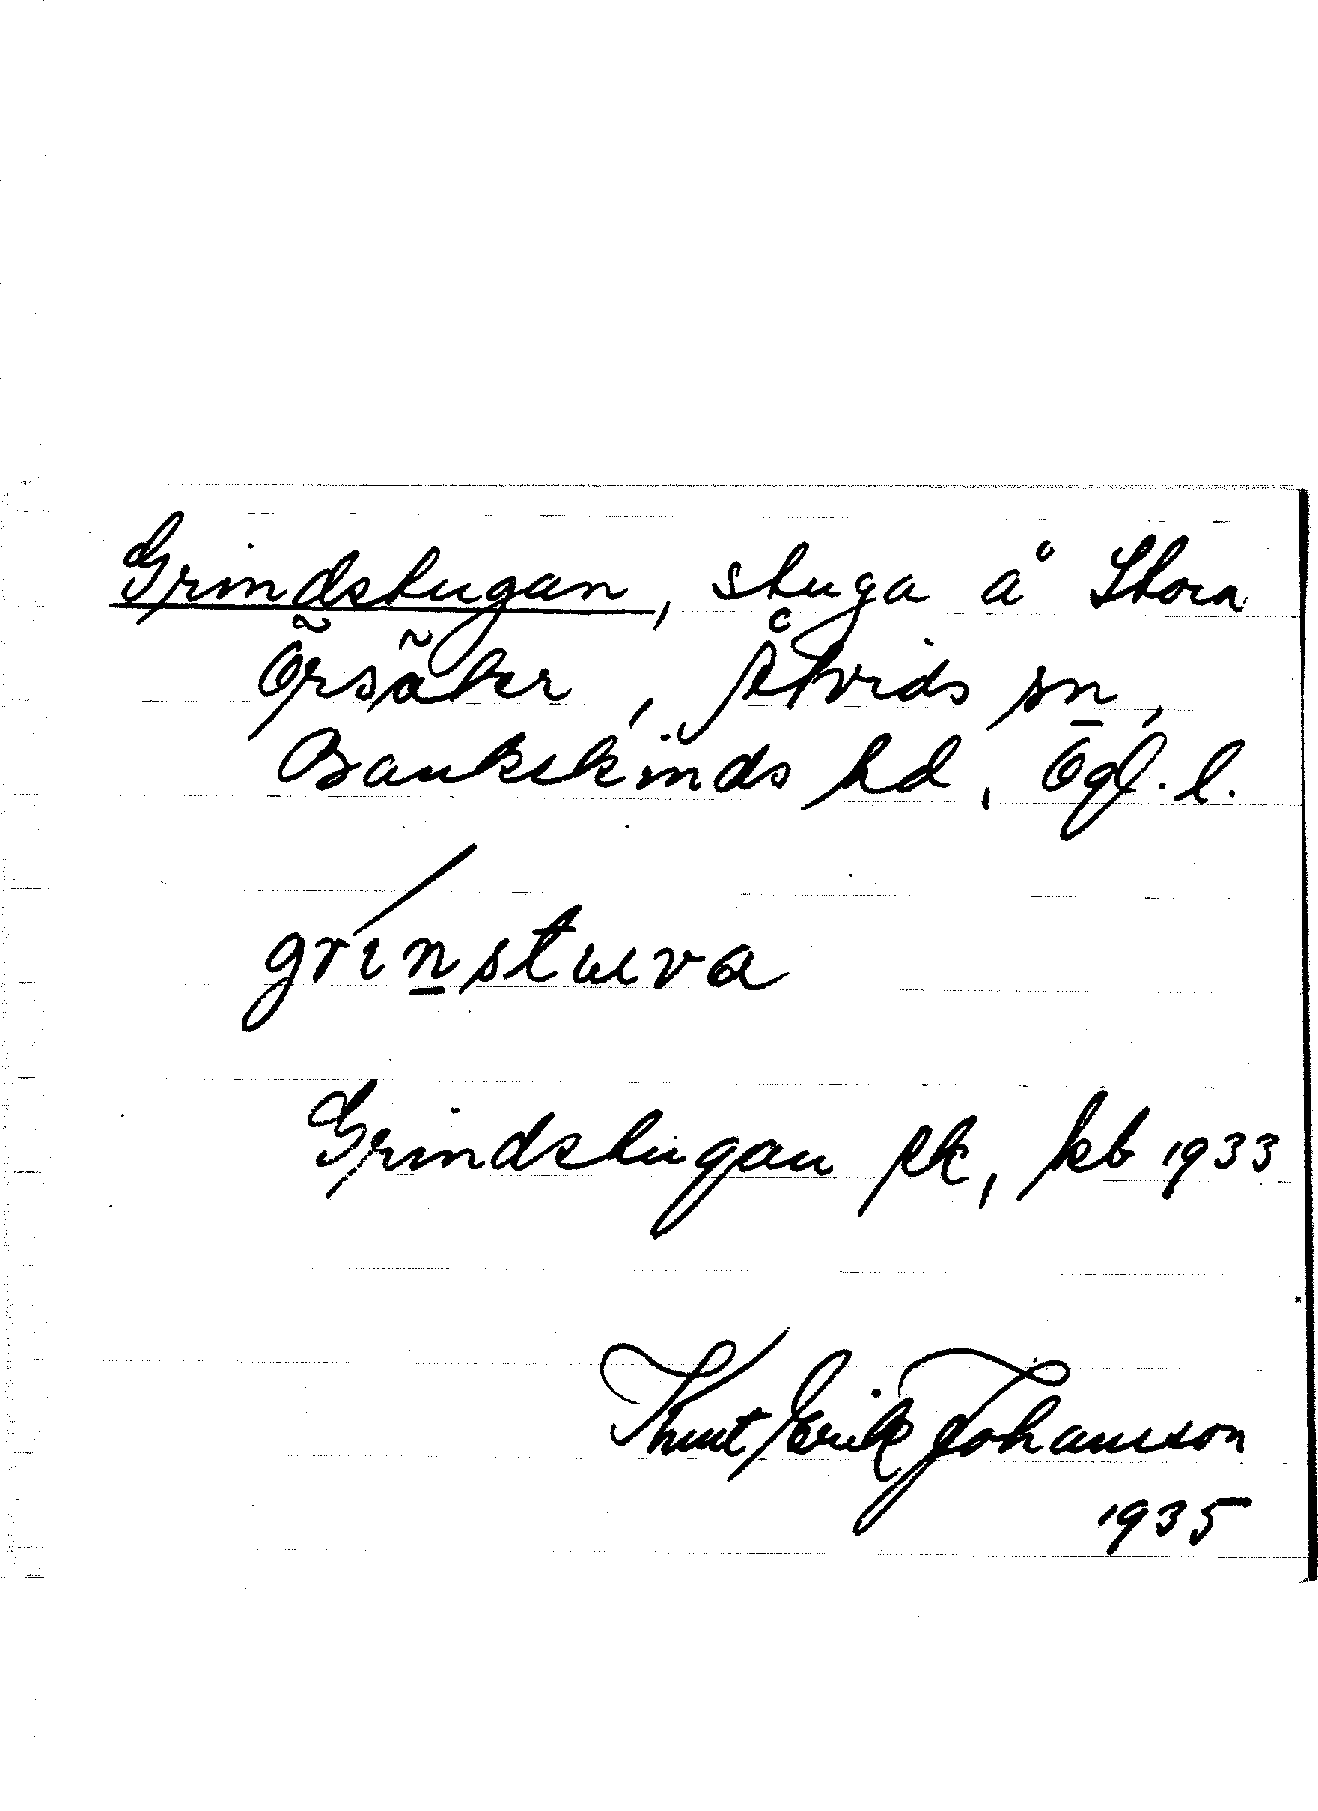 Grindstugan, stuga å Stora
Örsäter, Åtvids sn,
Bankekinds hd, Ögl. l.
grinstuva
Grindstugan pk, kb 1933
Knut Erik Johansson
1935